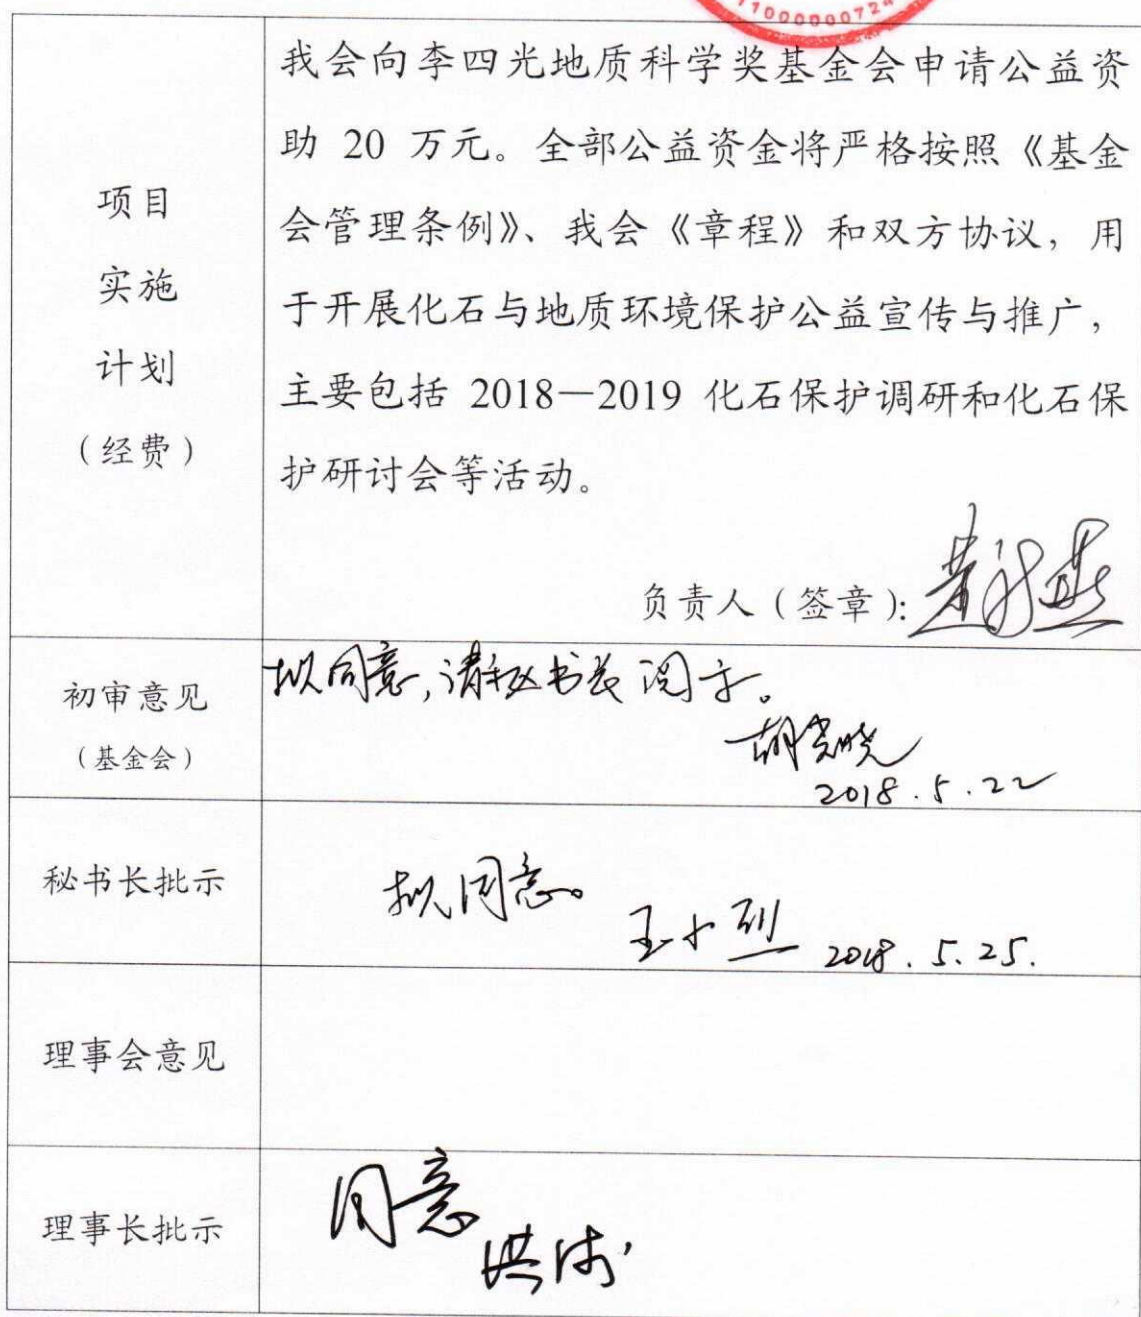 1100000072
我会向李四光地质科学奖基金会申请公益资
助 20 万元。全部公益资金将严格按照《基金
会管理条例》、我会《章程》和双方协议，用
于开展化石与地质环境保护公益宣传与推广，
主要包括 2018—2019 化石保护调研和化石保
护研讨会等活动。
项目
实施
计划
（经费）
负责人（签章）：
初审意见
（基金会）
拟同意，请秘书长阅示。
2018.5.22
秘书长批示
拟同意。
王小烈 2018.5.25.
理事会意见
理事长批示
同意